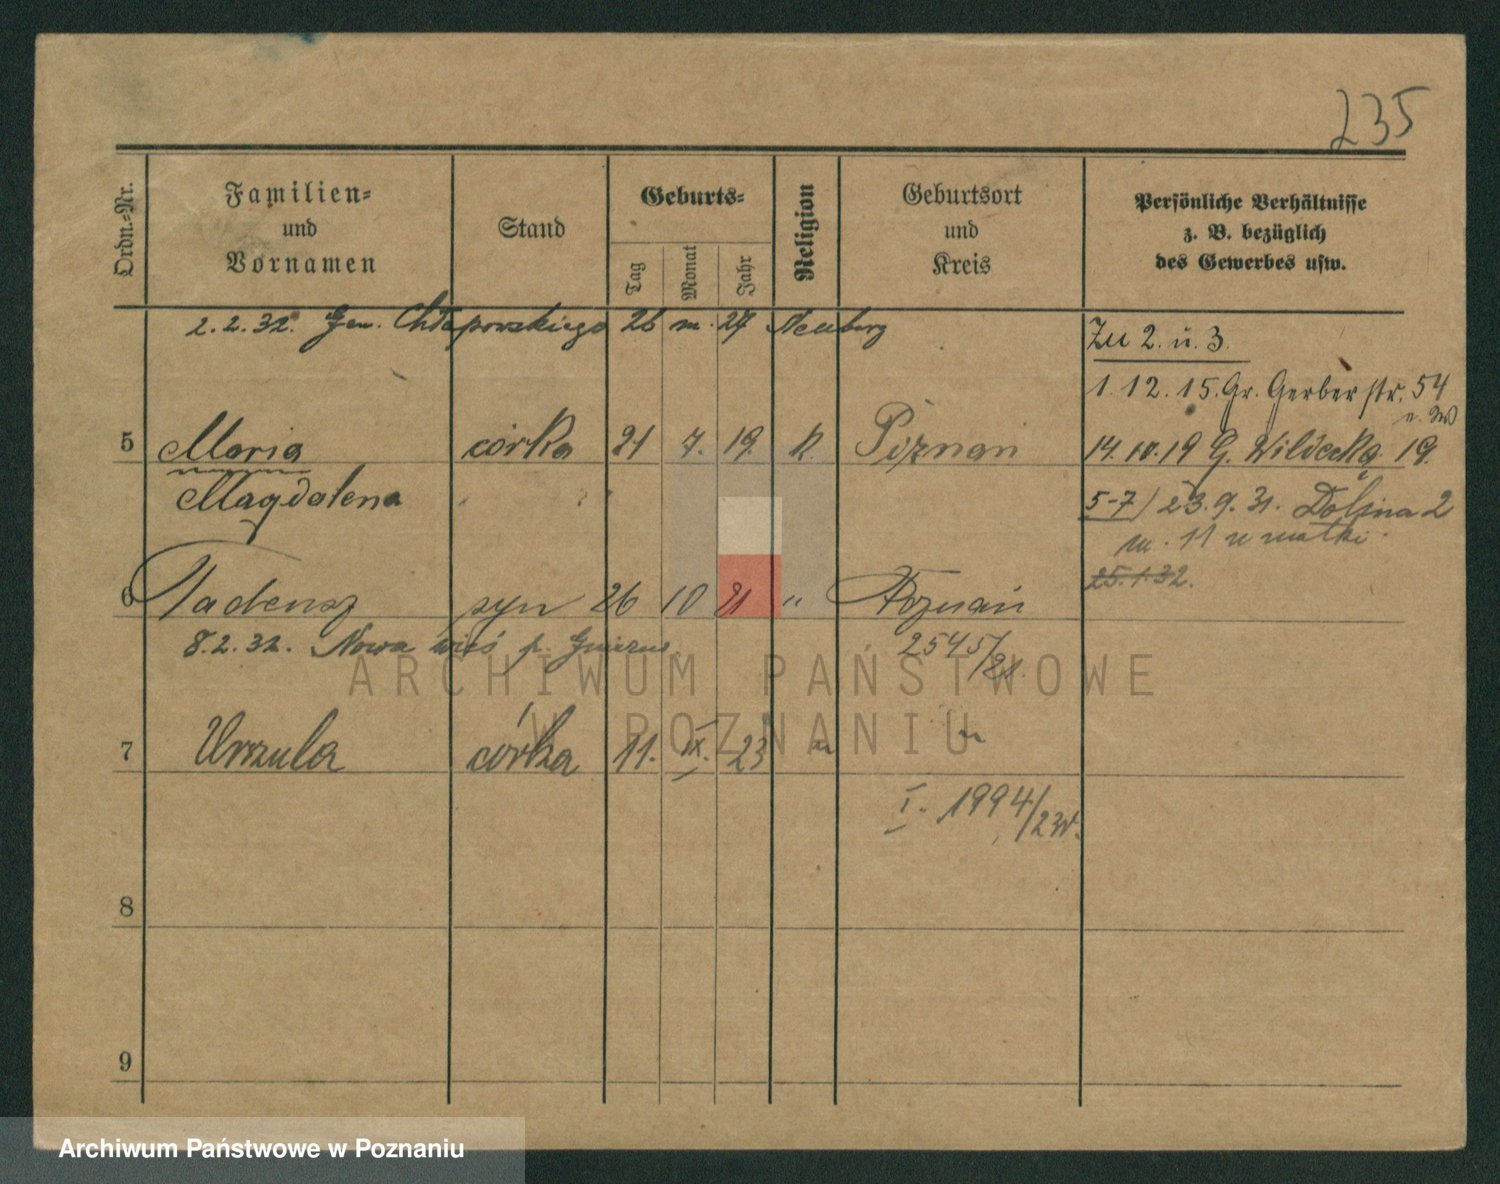 235
Ordn.-Nr.
Familien-
und
Vornamen
Stand
Geburts-
Tag
Monat
Jahr
Religion
Geburtsort
und
Kreis
Persönliche Verhältnisse
z. B. bezüglich
des Gewerbes usw.
2.2.32. Gen. Chłapowskiego 26 m. 27 Neuberg
Zu 2. u. 3.
1.12.15. Gr. Gerberstr. 54
5 Maria córka 21 7. 19. k. Poznań
14.10.19 G. Wildecka 19.
Magdalena
5-7) 23.9.31. Dolina 2
m. 11 u matki
25.1.32.
6 Tadeusz syn 26 10 21 " Poznań
8.2.32. Nowa wieś p.
2545/21.
7 Urszula córka 11. IX. 23
I. 1994/23
8
9
ARCHIWUM PAŃSTWOWE
W POZNANIU
Archiwum Państwowe w Poznaniu